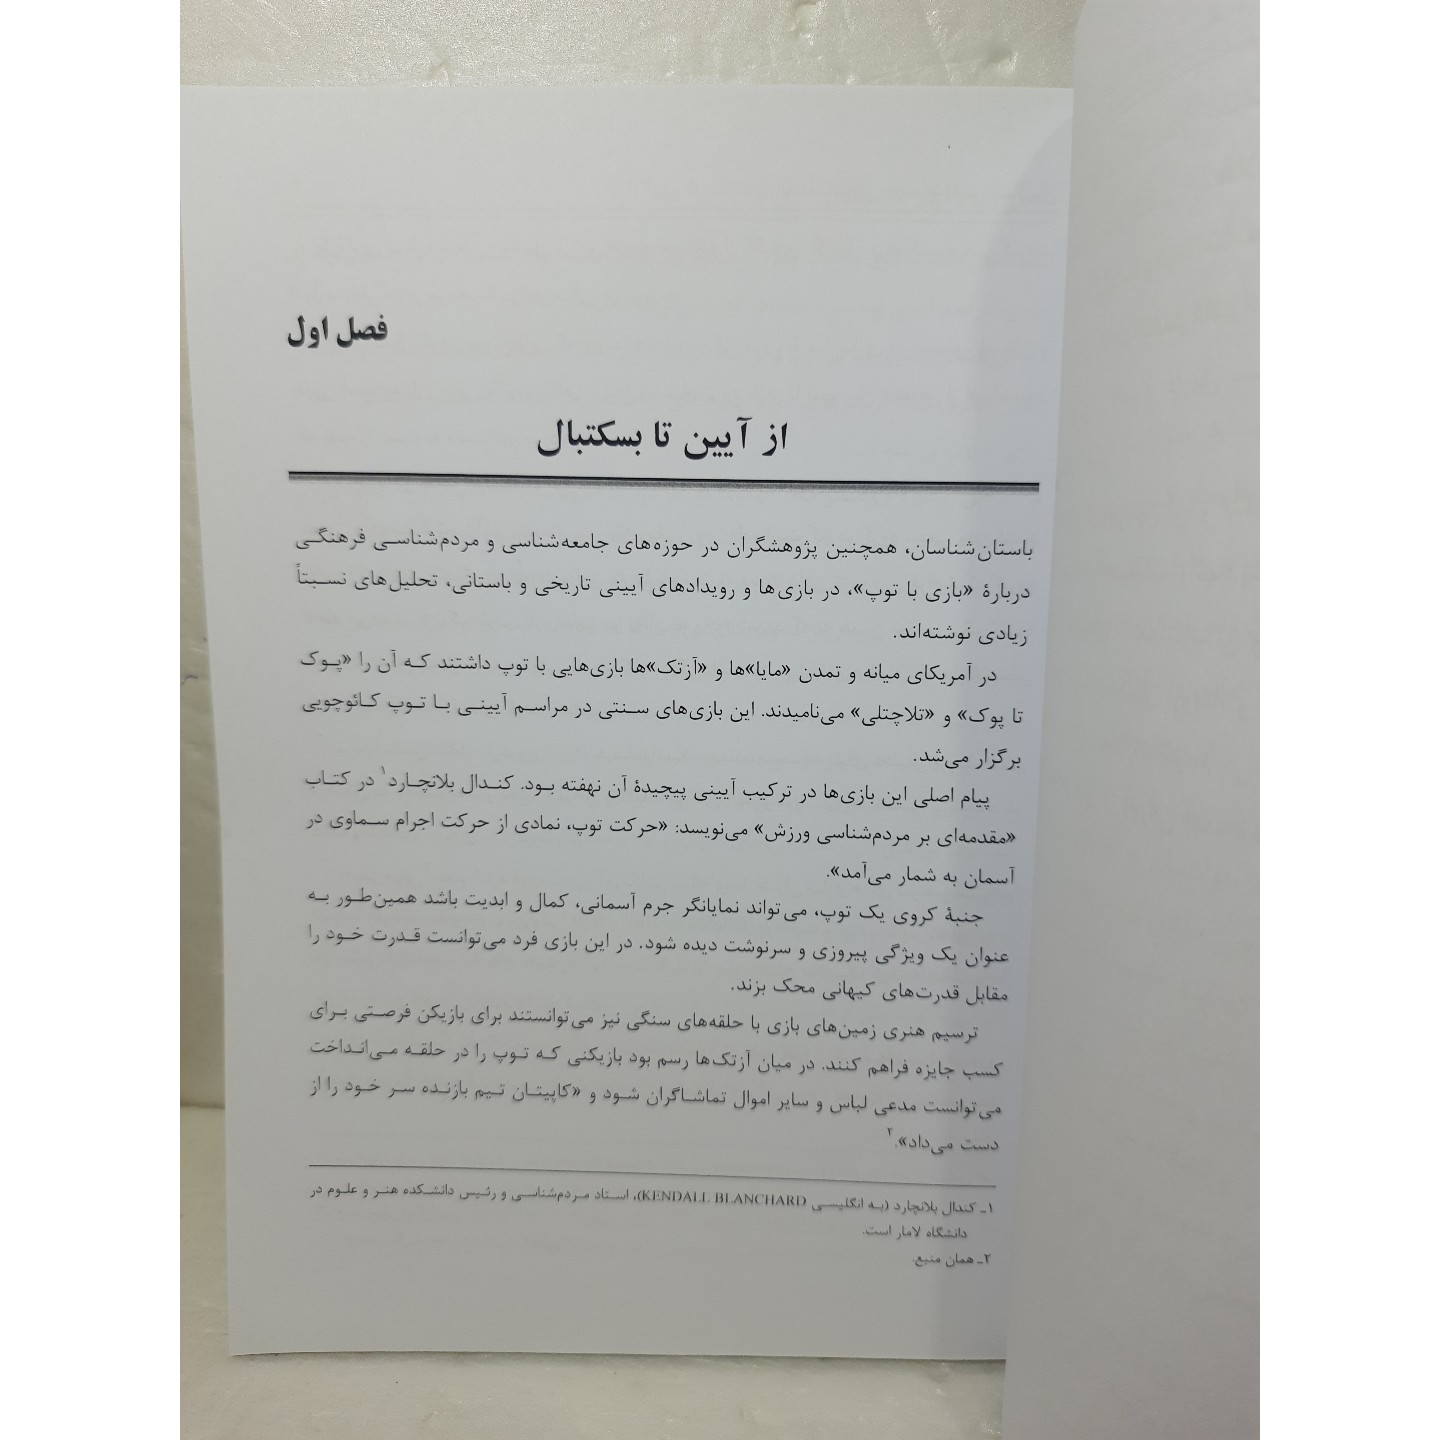 فصل اول
از آیین تا بسکتبال
باستان‌شناسان، همچنین پژوهشگران در حوزه‌های جامعه‌شناسی و مردم‌شناسی فرهنگی
دربارهٔ «بازی با توپ»، در بازی‌ها و رویدادهای آیینی تاریخی و باستانی، تحلیل‌های نسبتاً
زیادی نوشته‌اند.
در آمریکای میانه و تمدن «مایا»ها و «آزتک»ها بازی‌هایی با توپ داشتند که آن را «پوک
تا پوک» و «تلاچتلی» می‌نامیدند. این بازی‌های سنتی در مراسم آیینی با توپ کائوچویی
برگزار می‌شد.
پیام اصلی این بازی‌ها در ترکیب آیینی پیچیدهٔ آن نهفته بود. کندال بلانچارد۱ در کتاب
«مقدمه‌ای بر مردم‌شناسی ورزش» می‌نویسد: «حرکت توپ، نمادی از حرکت اجرام سماوی در
آسمان به شمار می‌آمد».
جنبهٔ کروی یک توپ، می‌تواند نمایانگر جرم آسمانی، کمال و ابدیت باشد همین‌طور به
عنوان یک ویژگی پیروزی و سرنوشت دیده شود. در این بازی فرد می‌توانست قدرت خود را
مقابل قدرت‌های کیهانی محک بزند.
ترسیم هنری زمین‌های بازی با حلقه‌های سنگی نیز می‌توانستند برای بازیکن فرصتی برای
کسب جایزه فراهم کنند. در میان آزتک‌ها رسم بود بازیکنی که توپ را در حلقه می‌انداخت
می‌توانست مدعی لباس و سایر اموال تماشاگران شود و «کاپیتان تیم بازنده سر خود را از
دست می‌داد».۲
۱ـ کندال بلانچارد (به انگلیسی KENDALL BLANCHARD)، استاد مردم‌شناسی و رئیس دانشکده هنر و علوم در
دانشگاه لامار است.
۲ـ همان منبع.